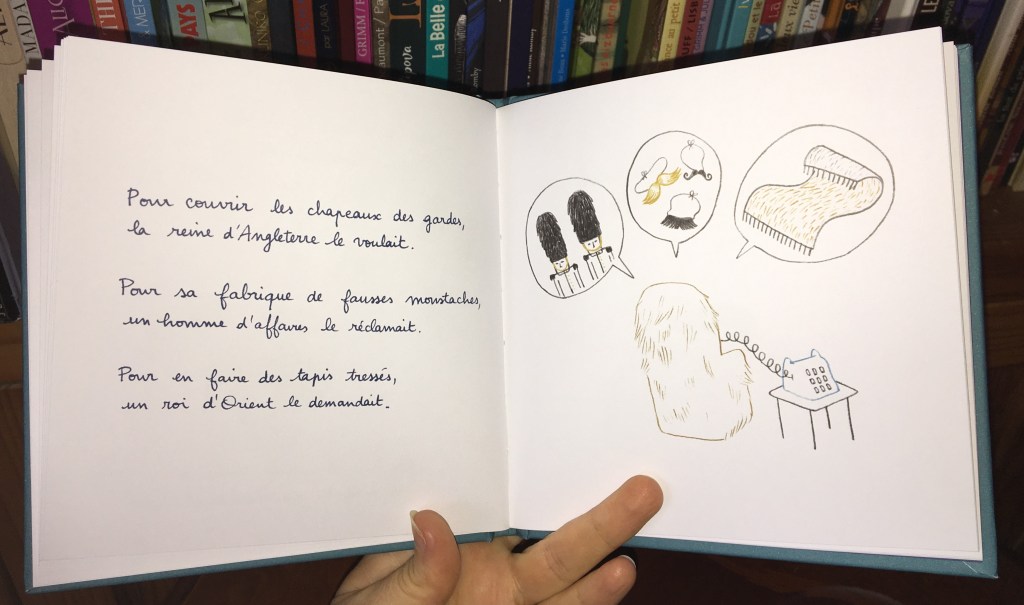 GRIMM
La Belle
Pour couvrir les chapeaux des gardes,
la reine d'Angleterre le voulait.
Pour sa fabrique de fausses moustaches,
un homme d'affaires le réclamait.
Pour en faire des tapis tressés,
un roi d'Orient le demandait.